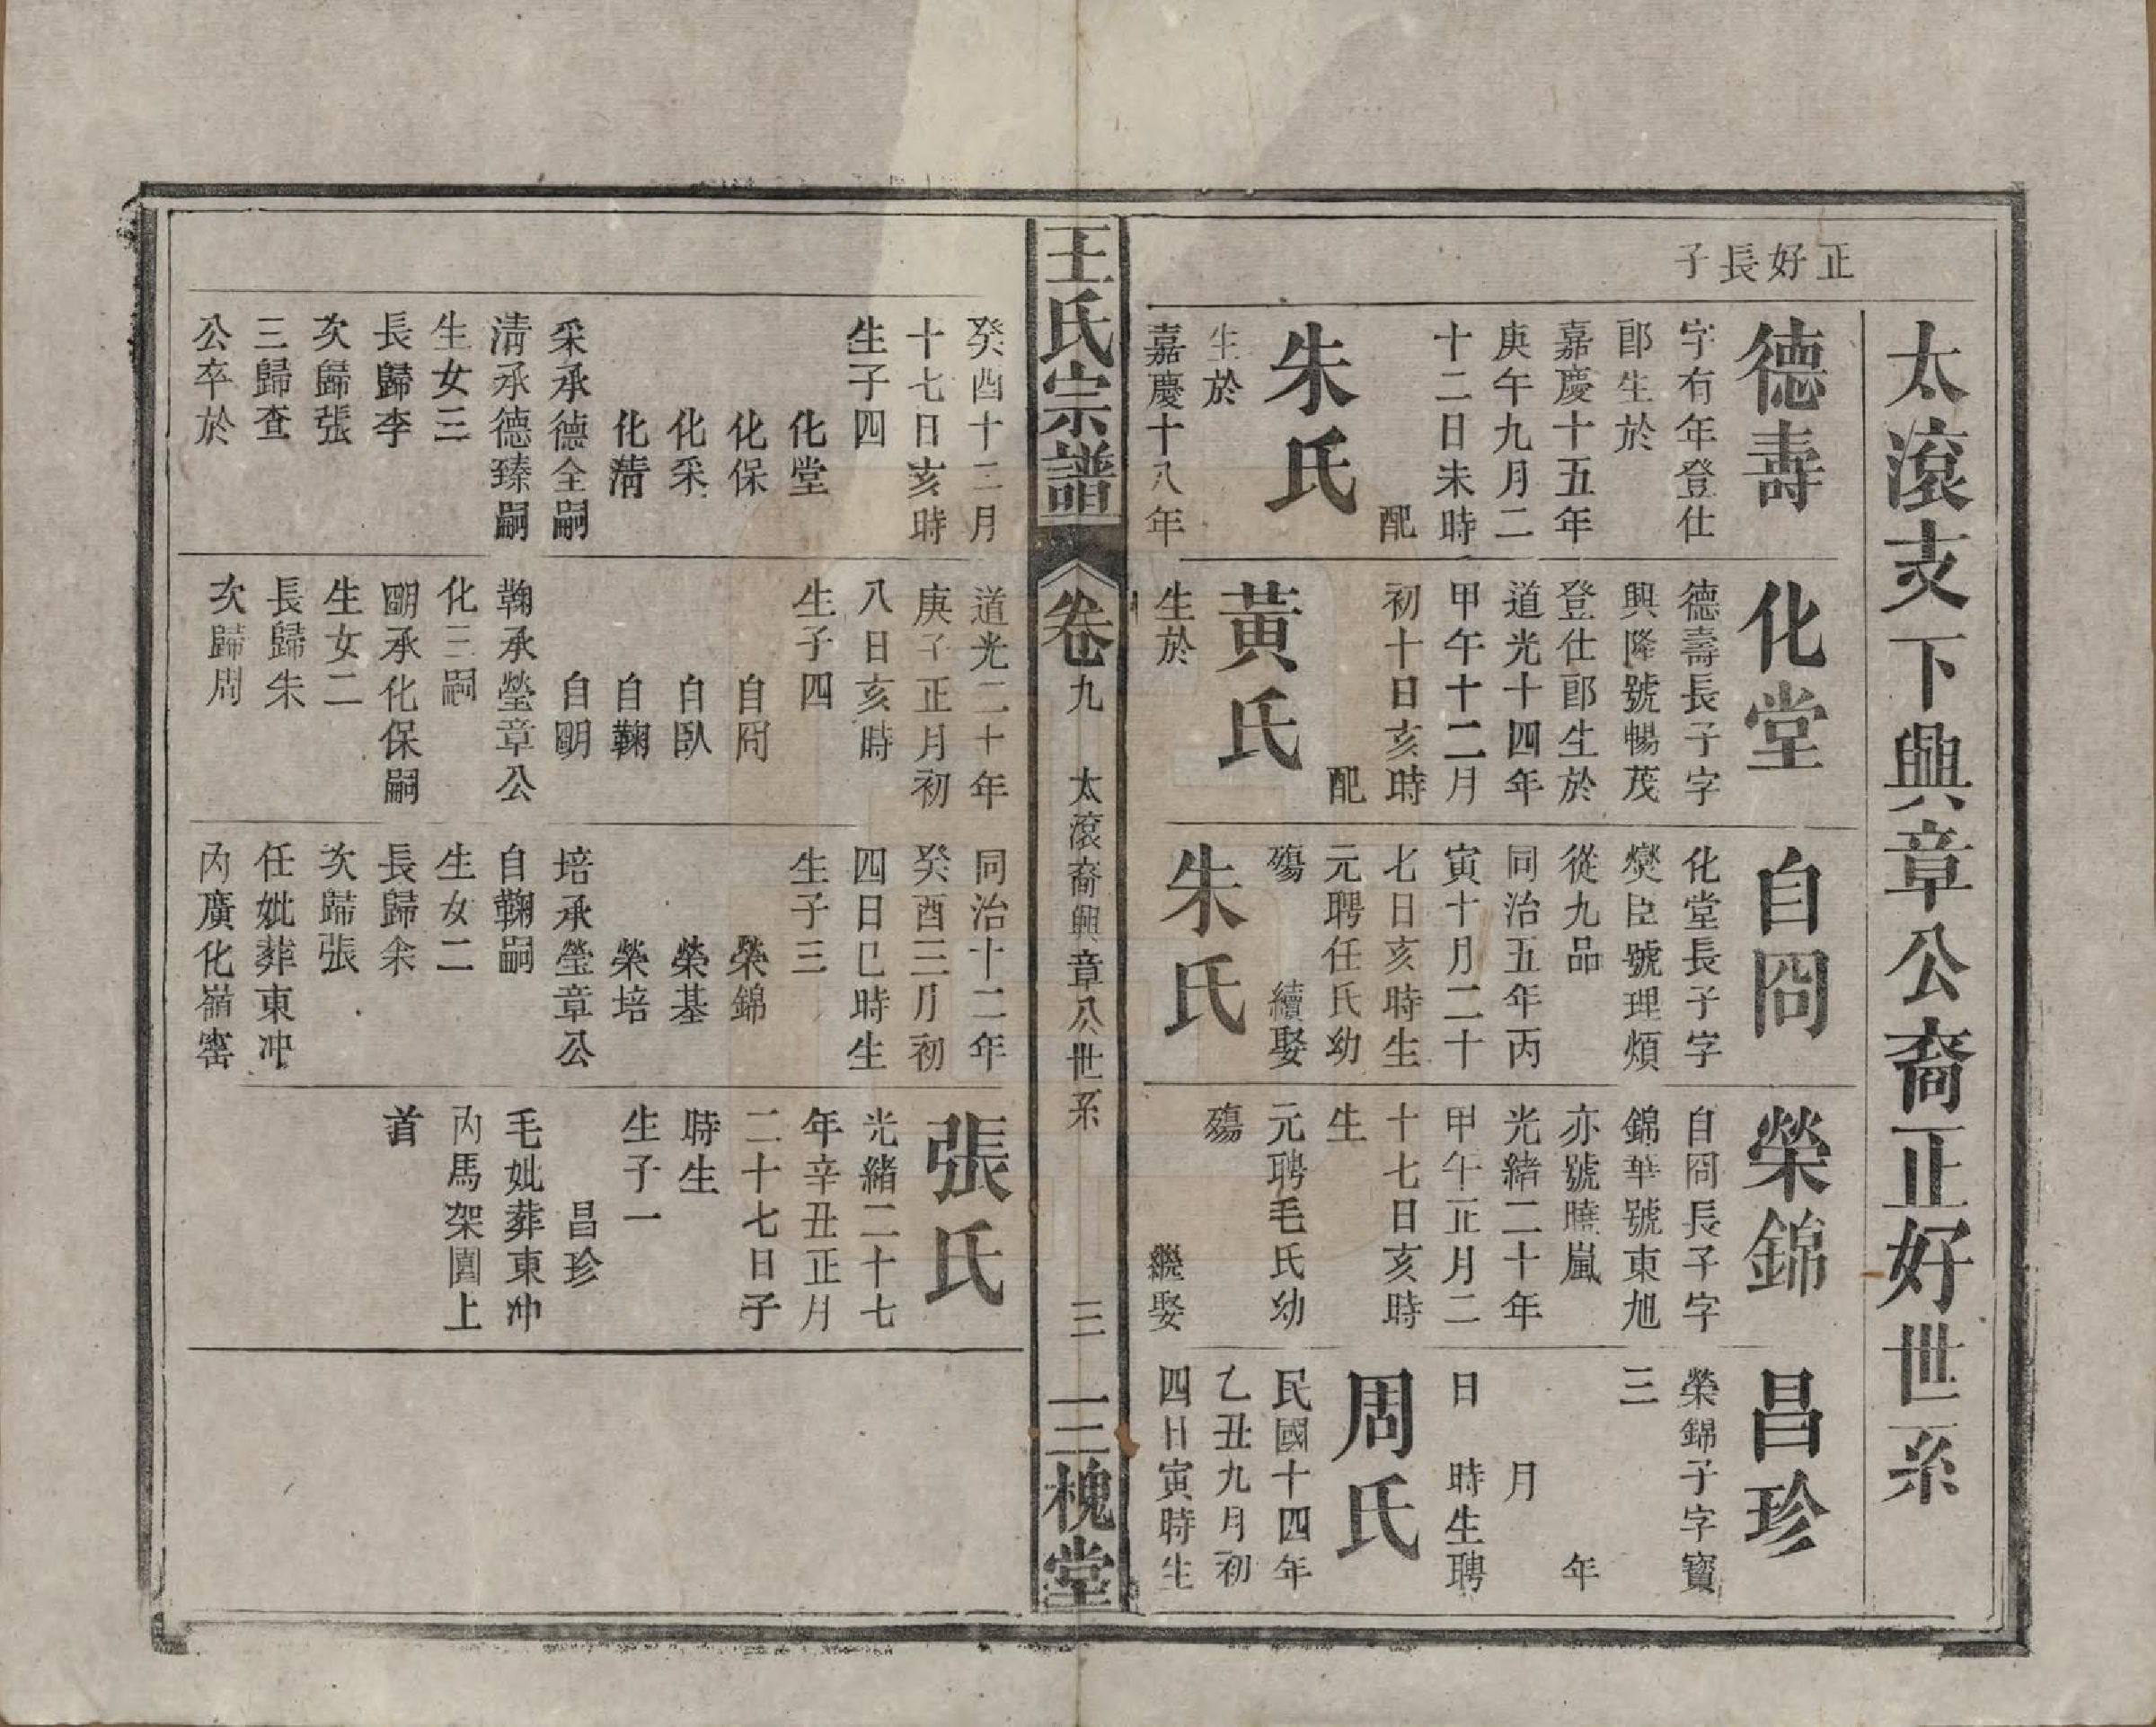 太滾支下興章公裔正好世系
正好長子
德壽
字有年登仕
郎生於
嘉慶十五年
庚午九月二
十二日未時
配
朱氏
生於
嘉慶十八年
化堂
德壽長子字
興隆號暢茂
登仕郎生於
道光十四年
甲午十二月
初十日亥時
配
黃氏
生於
自冏
化堂長子字
爕臣號理煩
從九品
同治五年丙
寅十月二十
七日亥時生
元聘任氏幼
殤　續娶
朱氏
榮錦
自冏長子字
錦華號東旭
亦號曉嵐
光緒二十年
甲午正月二
十七日亥時
生
元聘毛氏幼
殤
繼娶
昌珍
榮錦子字寶
三
年
月
日　時生聘
周氏
民國十四年
乙丑九月初
四日寅時生
王氏宗譜
卷九　太滾裔興章公世系　三
三槐堂
癸酉十二月
十七日亥時
生子四
化堂
化保
化采
化清
采承德全嗣
清承德臻嗣
生女三
長歸李
次歸張
三歸查
公卒於
道光二十年
庚子正月初
八日亥時
生子四
自冏
自臥
自鞠
自朙
鞠承瑩章公
化三嗣
朙承化保嗣
生女二
長歸朱
次歸周
同治十二年
癸酉三月初
四日巳時生
生子三
榮錦
榮基
榮培
培承瑩章公
自鞠嗣
生女二
長歸余
次歸張
任妣葬東冲
內廣化嶺窰
張氏
光緒二十七
年辛丑正月
二十七日子
時生
生子一
昌珍
毛妣葬東冲
內馬架園上
首